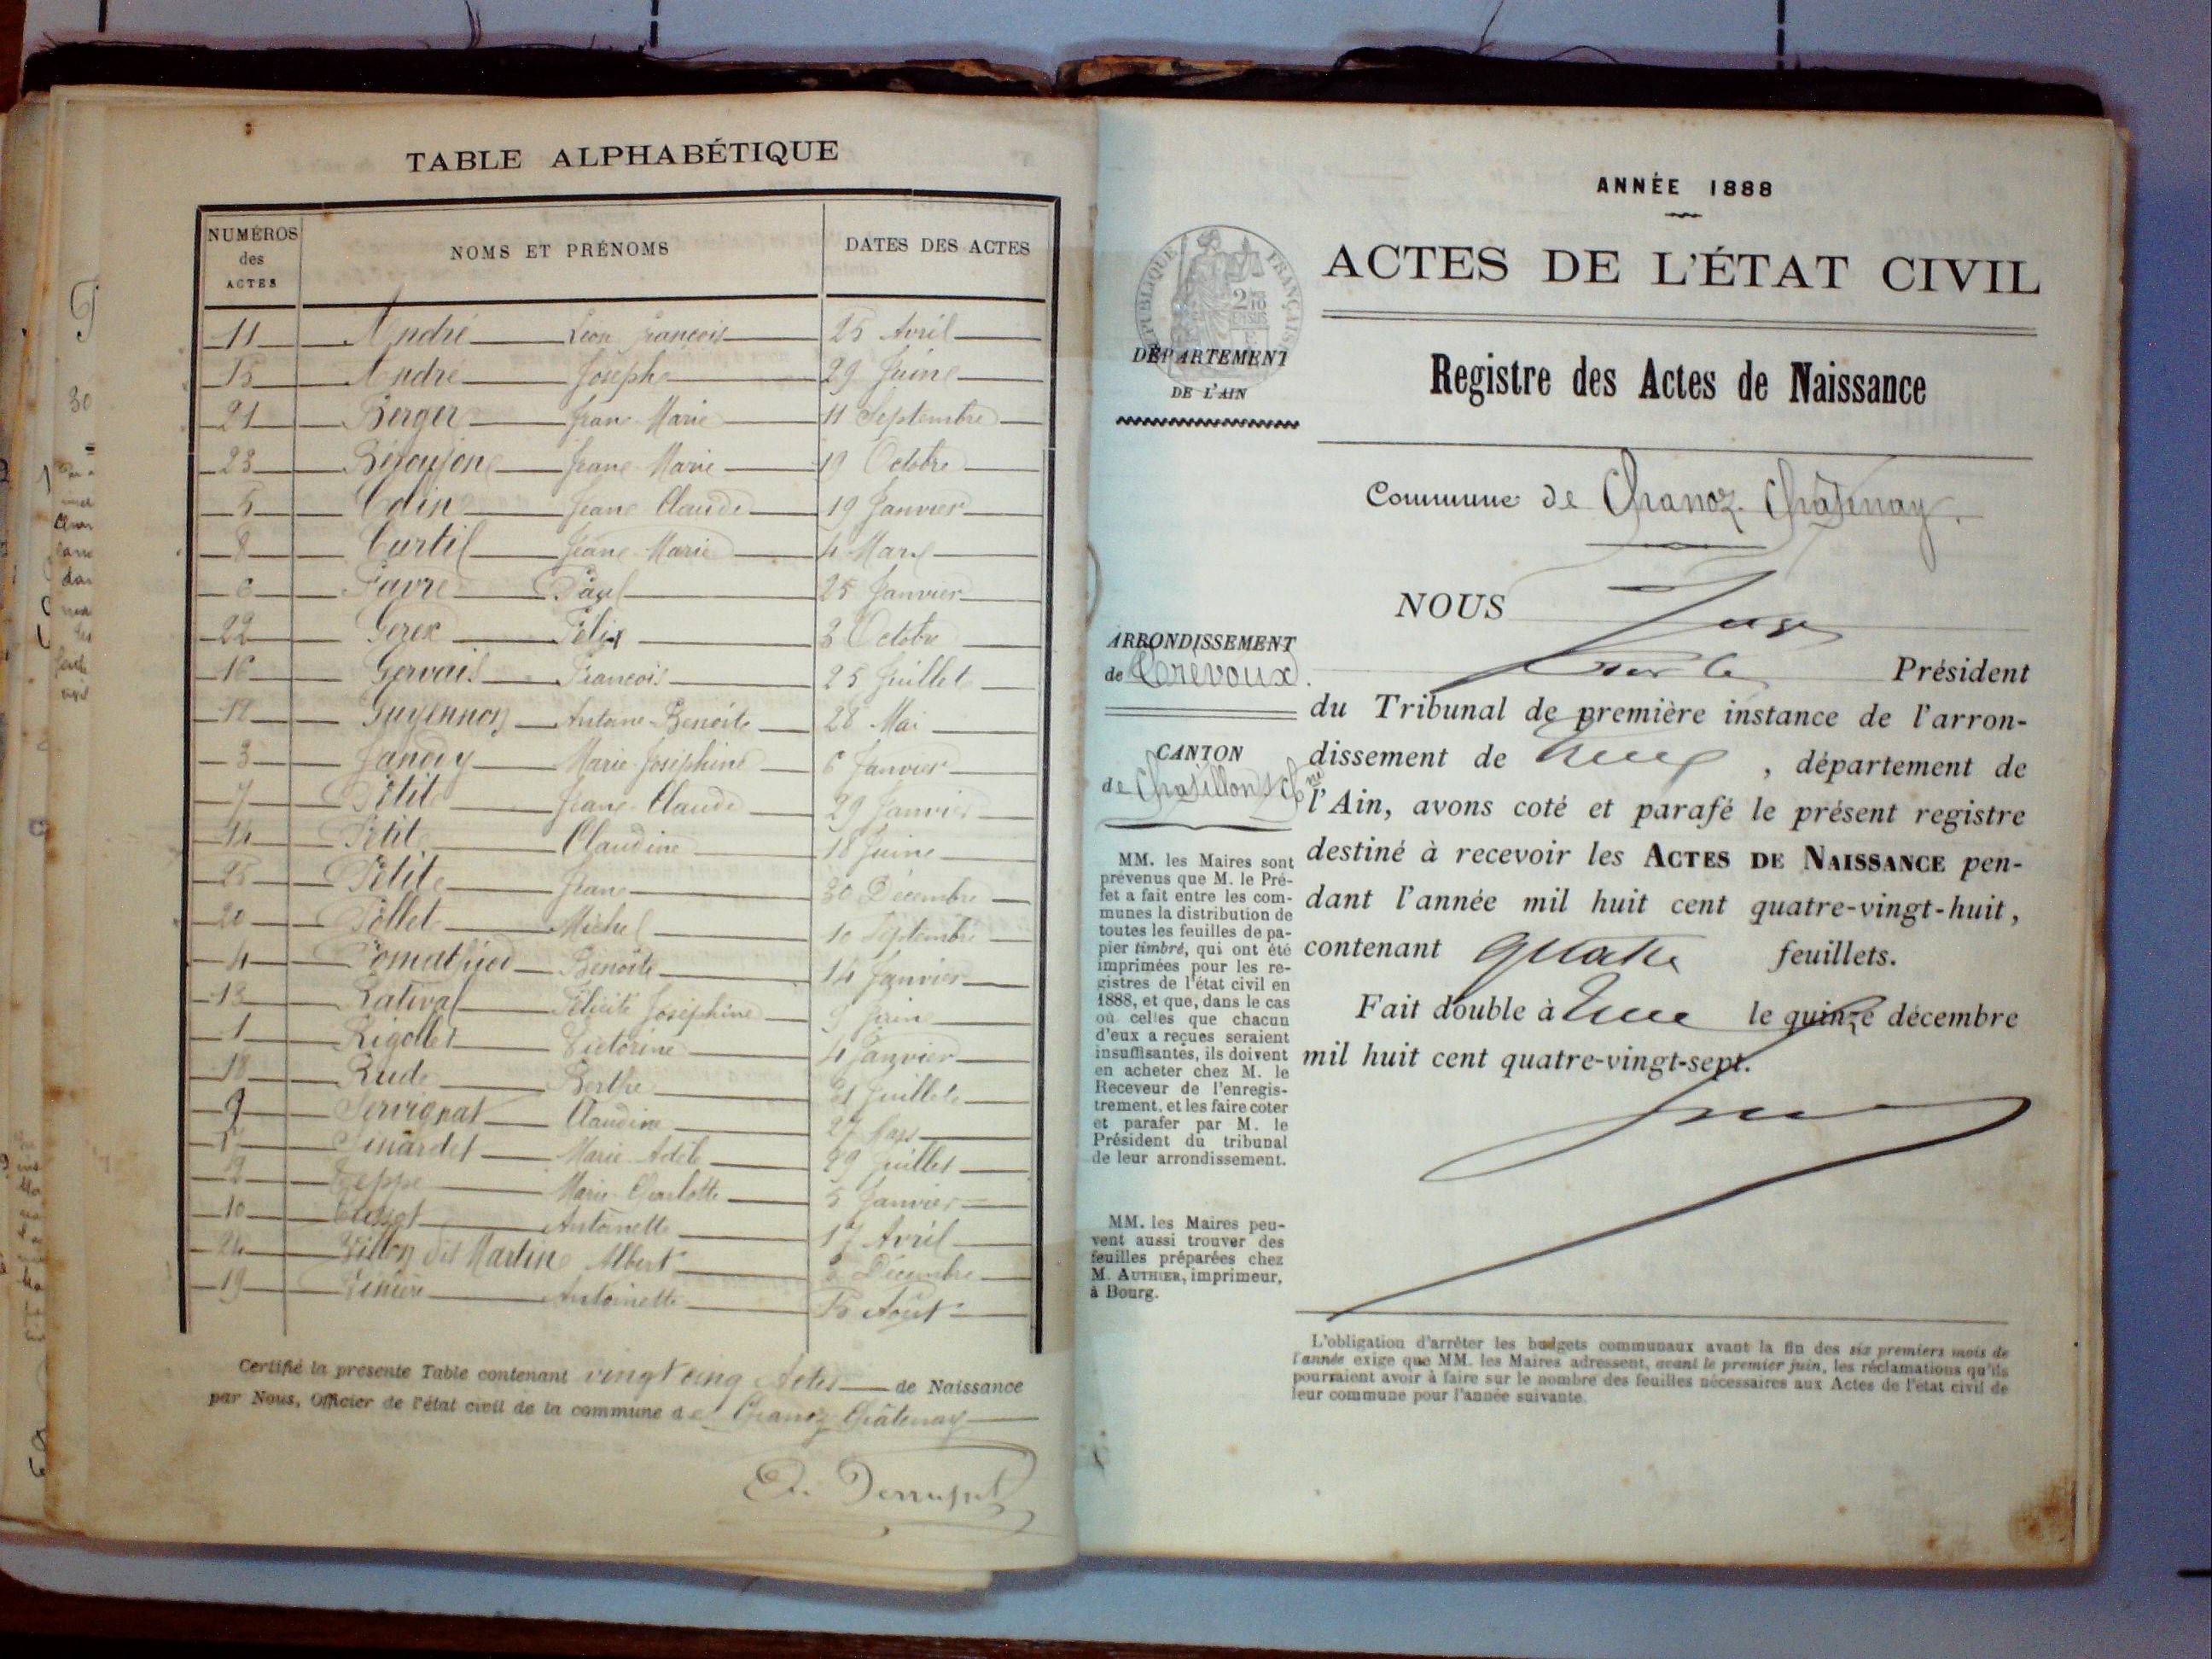 TABLE ALPHABÉTIQUE
NUMÉROS
des
ACTES
NOMS ET PRÉNOMS
DATES DES ACTES
11 André Léon François 25 Avril
15 André Joseph 29 Juine
21 Berger Jean Marie 11 Septembre
23 Jeane Marie 19 Octobre
5 Colin Jeane Claude 19 Janvier
8 Curtil Jeane Marie 4 Mars
6 Favre Paul 25 Janvier
22 Felix Octobre
16 Gervais Francois 25 Juillet
12 Guyennon Antoine Benoite 28 Mai
3 Janody Marie Joséphine 6 Janvier
7 Petit Jeane Claude 29 Janvier
14 Petit Claudine 18 Juine
25 Petit Jeane 30 Décembre
20 Pollet Michel 10 Septembre
4 Benoite 14 Janvier
13 Rativat Félicité Joséphine Juine
1 Rigollet Victorine 4 Janvier
18 Rude Berthe Juillet
9 Servignat Claudine 27 Mars
17 Sinardet Marie Adèle 29 Juillet
2 Teppe Marie Charlotte 5 Janvier
10 Antoinette 17 Avril
24 Villon dit Martin Albert Décembre
19 Antoinette Août
Certifié la présente Table contenant vingt cinq Actes de Naissance
par Nous, Officier de l'état civil de la commune de Chanoz Châtenay
ANNÉE 1888
ACTES DE L'ÉTAT CIVIL
RÉPUBLIQUE FRANÇAISE
DÉPARTEMENT
DE L'AIN
Registre des Actes de Naissance
Commune de Chanoz-Châtenay.
NOUS
ARRONDISSEMENT
de Trévoux.
Président
du Tribunal de première instance de l'arron-
dissement de , département de
CANTON
de Chatillon s/ Ch.ne
l'Ain, avons coté et parafé le présent registre
destiné à recevoir les ACTES DE NAISSANCE pen-
dant l'année mil huit cent quatre-vingt-huit,
contenant quatre feuillets.
Fait double à le quinze décembre
mil huit cent quatre-vingt-sept.
MM. les Maires sont
prévenus que M. le Pré-
fet a fait entre les com-
munes la distribution de
toutes les feuilles de pa-
pier timbré, qui ont été
imprimées pour les re-
gistres de l'état civil en
1888, et que, dans le cas
où celles que chacun
d'eux a reçues seraient
insuffisantes, ils doivent
en acheter chez M. le
Receveur de l'enregis-
trement, et les faire coter
et parafer par M. le
Président du tribunal
de leur arrondissement.
MM. les Maires peu-
vent aussi trouver des
feuilles préparées chez
M. AUTHIER, imprimeur,
à Bourg.
L'obligation d'arrêter les budgets communaux avant la fin des six premiers mois de
l'année exige que MM. les Maires adressent, avant le premier juin, les réclamations qu'ils
pourraient avoir à faire sur le nombre des feuilles nécessaires aux Actes de l'état civil de
leur commune pour l'année suivante.